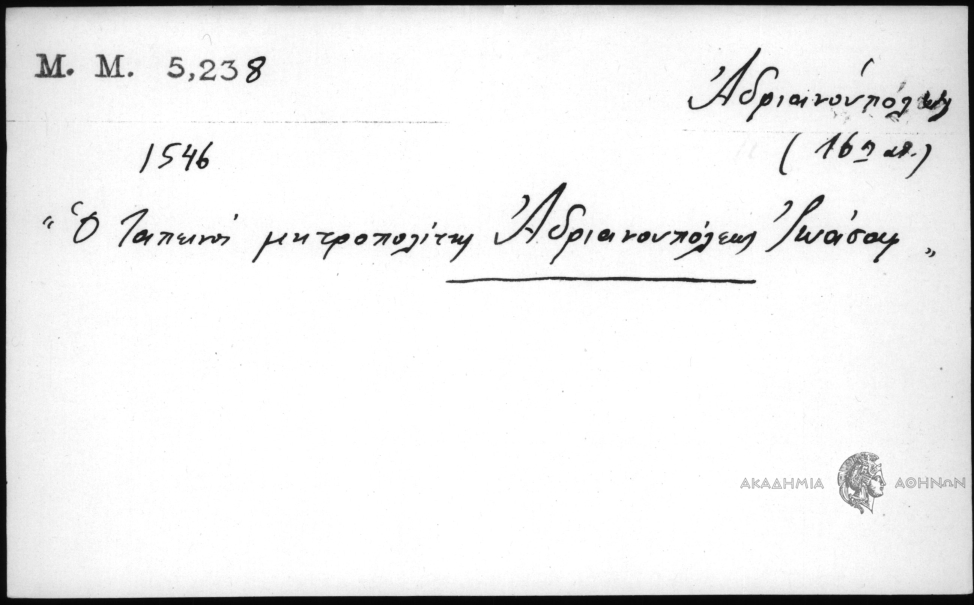 M. M. 5,238
Ἀδριανούπολις
(16ος αἰ.)
1546
"Ὁ Ταπεινὸς μητροπολίτης Ἀδριανουπόλεως Ἰωάσαφ"
ΑΚΑΔΗΜΙΑ ΑΘΗΝΩΝ